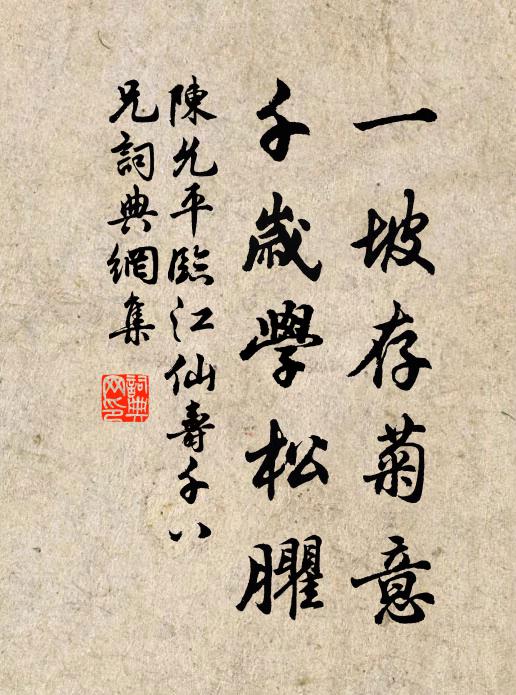 一坡存菊意
千歲學松臞
陳允平臨江仙壽千八
兄詞典網集
詞典
网印